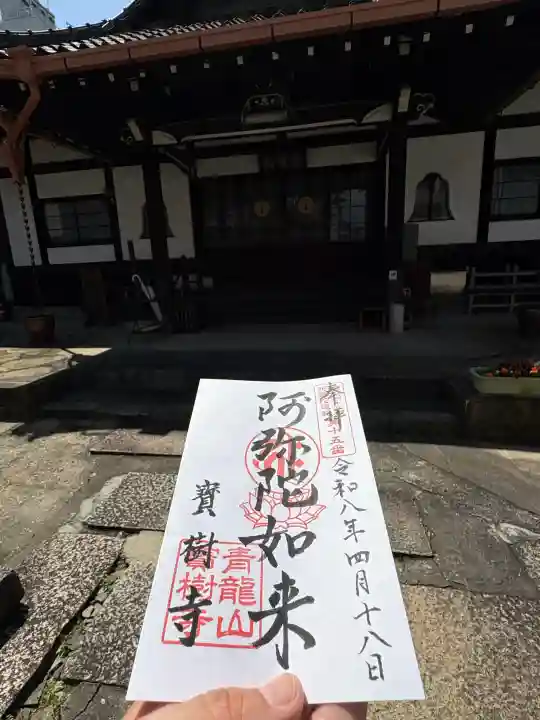 奉拝
十五番
令和八年四月十八日
阿弥陀如来
寳樹寺
青龍山
寳樹寺